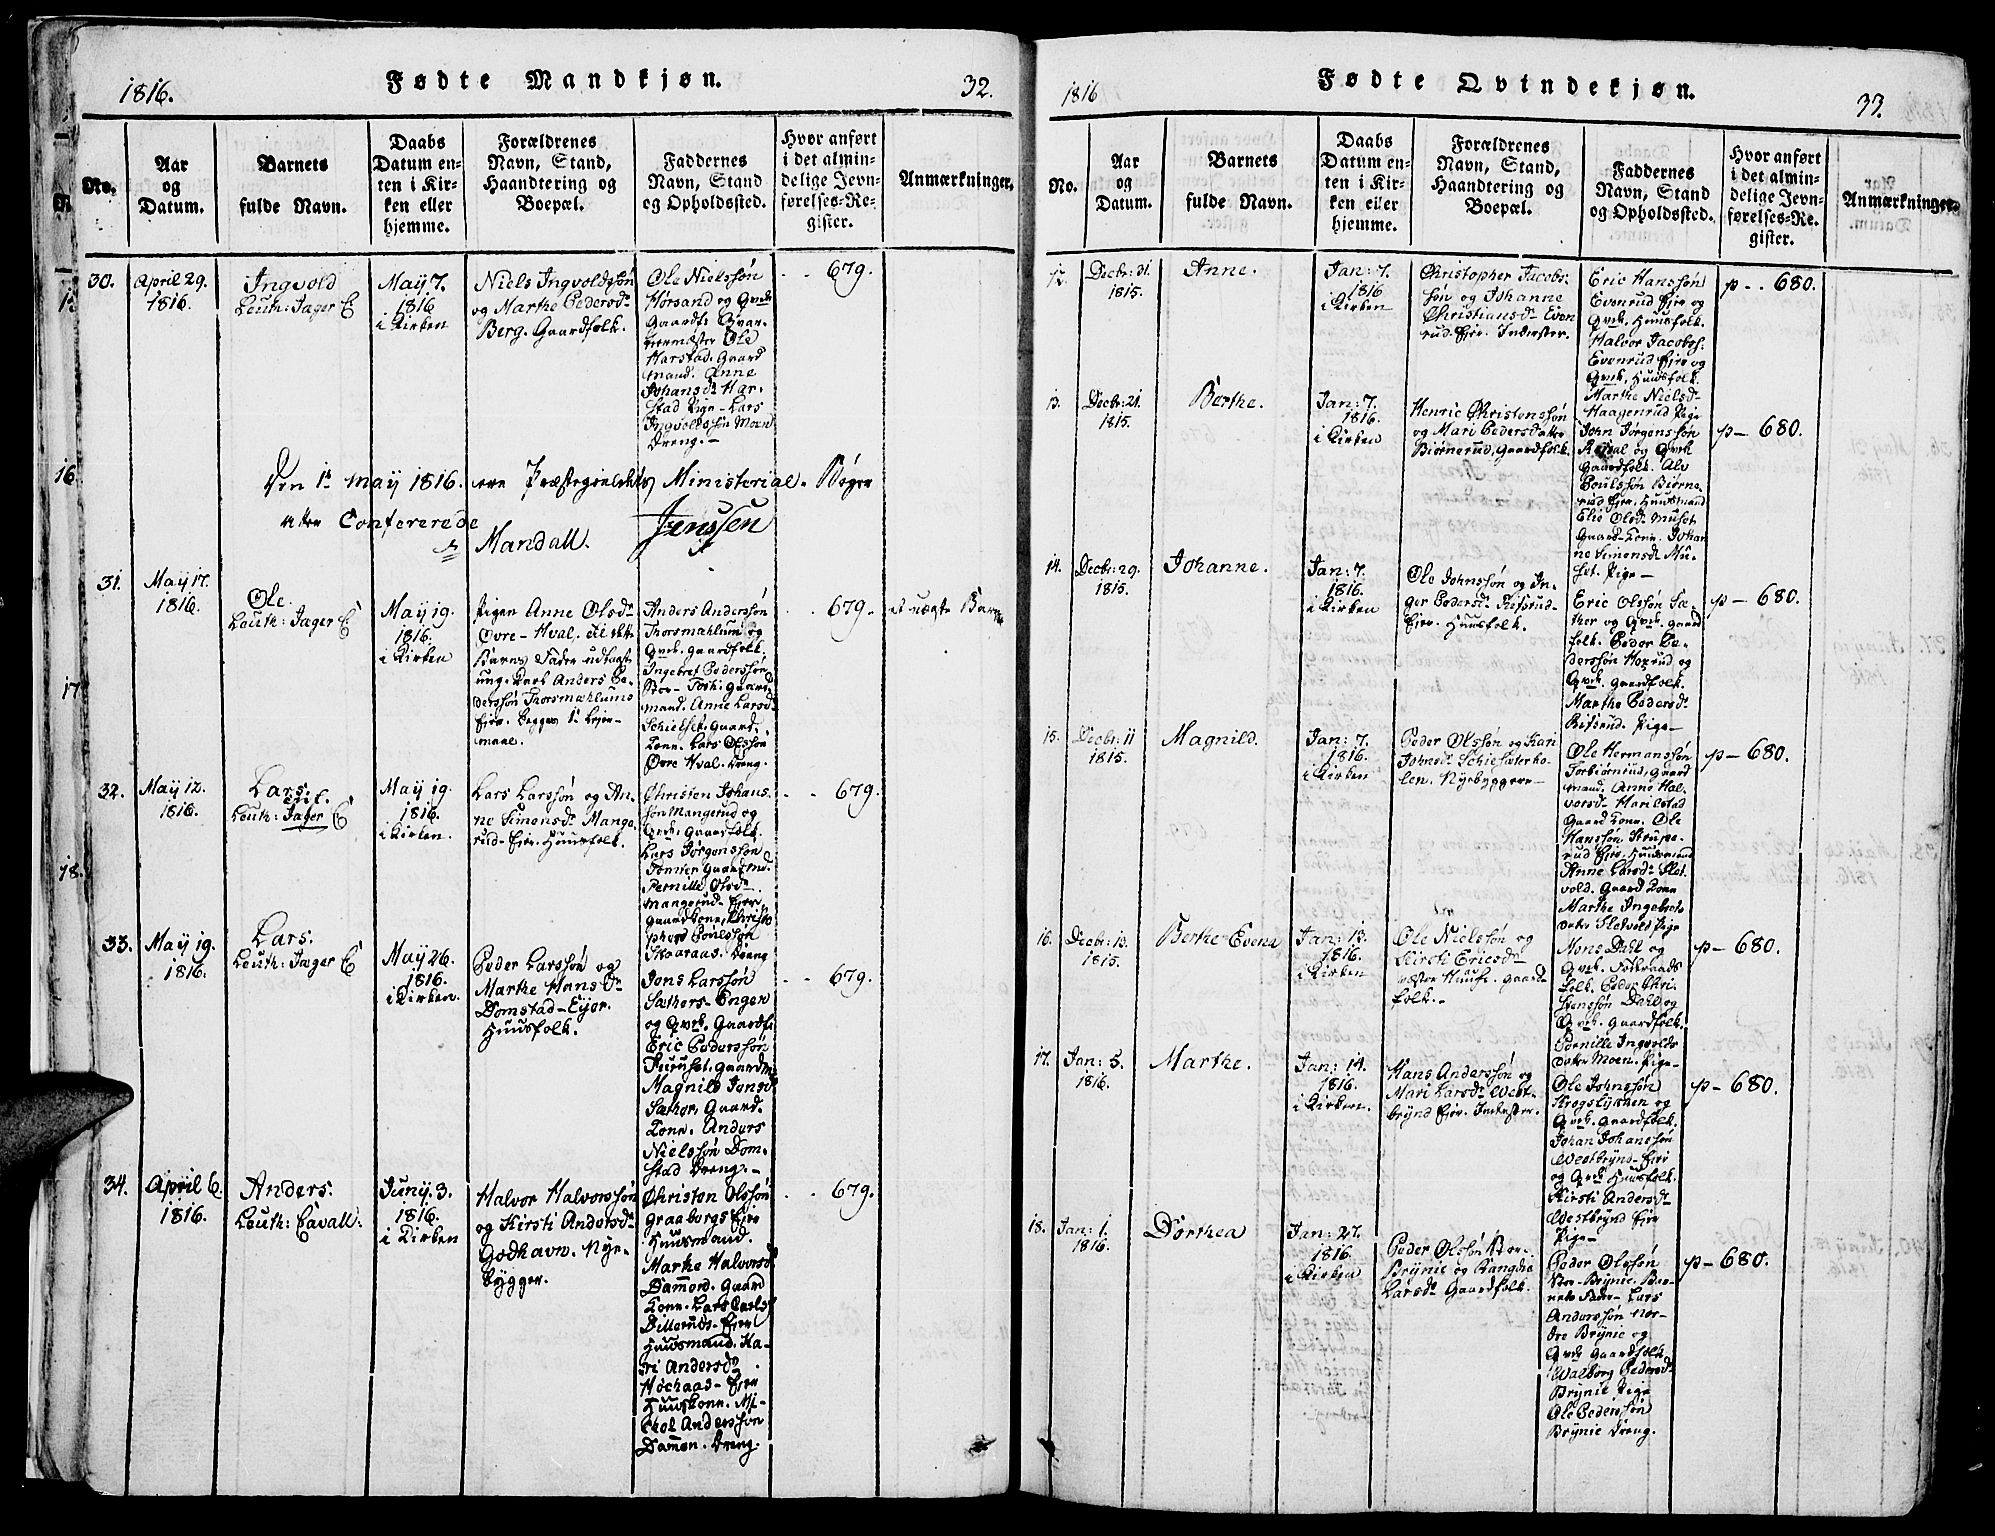 1816.
Fødte Mandkjøn.
32.
No.
Aar
og
Datum.
Barnets
fulde Navn.
Daabs
Datum en-
ten i Kir-
ken eller
hjemme.
Forældrenes
Navn, Stand,
Haandtering og
Boepæl.
Faddernes
Navn, Stand
og Opholdssted.
Hvor anført
i det almin-
delige Jevn-
førelses-Re-
gister.
Anmærkninger.
30.
April 29.
1816.
Ingvold
Leuth: Jager C
May 7.
1816
i Kirken
Niels Ingvoldssøn
og Marthe Pedersd.
Berg. Gaardfolk.
Ole Nielssøn
Horsand og Qvek
Gaardf. Qvar-
termester Ole
Harstad. Gaard
mand. Anne
Johansd. Har-
stad Pige - Lars
Ingvoldssøn Moen
Dreng. -
679.
Den 1te May 1816. ere Præstegieldets Ministerial-Bøger
atter Confererede
Mandall.
Jenssen
31.
May 17.
1816.
Ole.
Leuth: Jager C
May 19.
1816.
i Kirken
Pigen Anne Olsd.
Øvre-Hval. til dette
Barns Fader udlagt
ung. Karl Anders Pe-
derssøn Thorsmæhlums
Eier. Begges 1te Leier-
maal.
Anders Anderssøn
Thorsmæhlum og
Qvek. Gaardfolk.
Ingebret Pederssøn
Stor-Tosh. Gaard
mand. Anne Larsd.
Schielset. Gaard
Kone. Lars Olssøn
Øvre Hval. Dreng.
679.
et uægte Barn
32.
May 12.
1816.
Lars.
Leuth: Jager C
May 19.
1816.
i Kirken.
Lars Larssøn og An-
ne Simensd. Mange-
rud-Eier. Huusfolk.
Christen Johans-
søn Mangerud og
Qvek. Gaardfolk.
Lars Jørgenssøn
Tønner Gaardmd.
Pernille Olsd.
Mangerud-Eier
Gaard Kone. Christo
pher Poulssøn
Skaaraas. Dreng
679.
33.
May 19.
1816.
Lars.
Leuth: Jager C
May 26.
1816.
i Kirken.
Peder Larssøn og
Marthe Hansd.
Domstad-Eier.
Huusfolk.
Jons Larssøn
Sæthers-Engen
og Qvek. Gaardf.
Eric Pederssøn
Furuset. Gaardmd
Magnild Jonsd.
Sæther. Gaard-
Kone. Anders
Nielssøn Dom-
stad Dreng. -
679.
34.
April 6.
1816.
Anders.
Leuth: Cavall:
Juny 3.
1816.
i Kirken
Halvor Halvorssøn
og Kirsti Andersd.
Godhavn. Nye-
bygger.
Christen Olssøn
Graaborgs Eier
Huusmand.
Marthe Halvorsd
Dammen. Gaard
Kone. Lars Carls
Dillerud-Eier
Huusmand. Ka-
ri Andersd.
Høchaas-Eier
Huuskone. Mi-
chel Anderssøn
Dammen. Dreng.
679.
1816
Fødte Qvindekjøn.
33.
No.
Aar
og
Datum.
Barnets
fulde Navn.
Daabs
Datum en-
ten i Kir-
ken eller
hjemme.
Forældrenes
Navn, Stand,
Haandtering og
Boepæl.
Faddernes
Navn, Stand
og Opholdssted.
Hvor anført
i det almin-
delige Jevn-
førelses-Re-
gister.
Anmærkninger.
12.
Decbr: 31.
1815.
Anne.
Jan: 7.
1816
i Kirken
Christopher Jacobs-
søn og Johanne
Christiansd. Even
rud-Eier. Inderster.
Eric Hanssøn
Evenrud Eier og
Qvek. Huusfolk.
Halvor Jacobs:
Evenrud Eier og
Qvek. Huusfolk.
Marthe Nielsd.
Haagenrud Pige
p - . 680.
13.
Decbr: 21.
1815.
Berthe.
Jan: 7.
1816.
i Kirken
Henric Christenssøn
og Mari Pedersdatter
Biørnerud, Gaardfolk.
John Jørgenssøn
og Qvek
Gaardfolk. Ale
Poulssøn Biørne
rud Eier. Huusmand
Elie Olsd. Muset
Gaard-Kone. Johan
ne Simensd. Mu-
set. Pige -
p - 680.
14.
Decbr: 29.
1815.
Johanne.
Jan: 7.
1816.
i Kirken
Ole Johnssøn og In-
ger Pedersd.
Eier. Huusfolk.
Eric Olssøn Sæ-
ther og Qvek. Gaard
folk. Peder Pe-
derssøn Hoxrud og
Qvek. Gaardfolk.
Marthe Pedersd.
Pige -
p - 680.
15.
Decbr: 11
1815.
Magnild.
Jan: 7.
1816.
i Kirken
Peder Olssøn og Kari
Johnsd. Schiesæterho-
len. Nyebyggere -
Ole Hermanssøn
Torbiørnrud, Gaard
mand. Anne Hal-
vorsd. Harilstad
Gaard Kone. Ole
Hanssøn Strupe-
rud Eier. Huusmand
Anne Larsd. Slet-
vold. Gaard Kone
Marthe Ingebrets
datter Sletvold Pige
p - 680.
16.
Decbr: 13.
1815.
Berthe-Evena
Jan: 13.
1816.
i Kirken
Ole Nielssøn og
Kirsti Ericsd.
vester Huuse. Gaard-
folk. -
Mons Dahl og
Qvek. Foleraads
folk. Peder Chri-
stenssøn Dahl og
Qvek. Gaardfolk.
Pernille Ingvolds
datter Moen. Pige -
p - 680.
17.
Jan: 5.
1816.
Marthe.
Jan: 14.
1816.
i Kirken.
Hans Anderssøn og
Mari Larsd. West-
brynd Eier. Inderster.
Ole Johnssøn
Krogslykken og
Qvek. Gaardfolk.
Johan Johanssøn
Westbrynd-Eier
og Qvek Huusfolk.
Kirsti Andersd.
Westbrynd Eier
Pige -
p - 680.
18.
Jan: 1.
1816.
Dorthea
Jan: 27.
1816.
i Kirken
Peder Olssøn Stor-
Brynie og Rangdia
Larsd. Gaardfolk.
Peder Olssøn
Stor-Brynie. Bar-
nets Fader - Lars
Anderssøn nor-
dre Brynie og
Qvek Gaardfolk
Walborg Pedersd.
Brynie Pige
Ole Pederssøn
Brynie Dreng.
p - 680.
16
17
18.